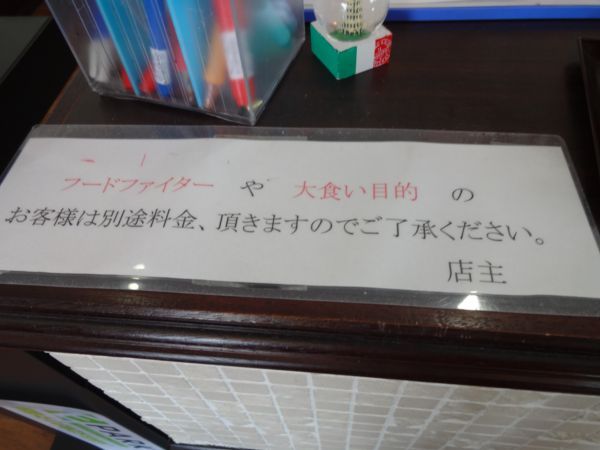 フードファイター や 大食い目的 の
お客様は別途料金、頂きますのでご了承ください。
店主